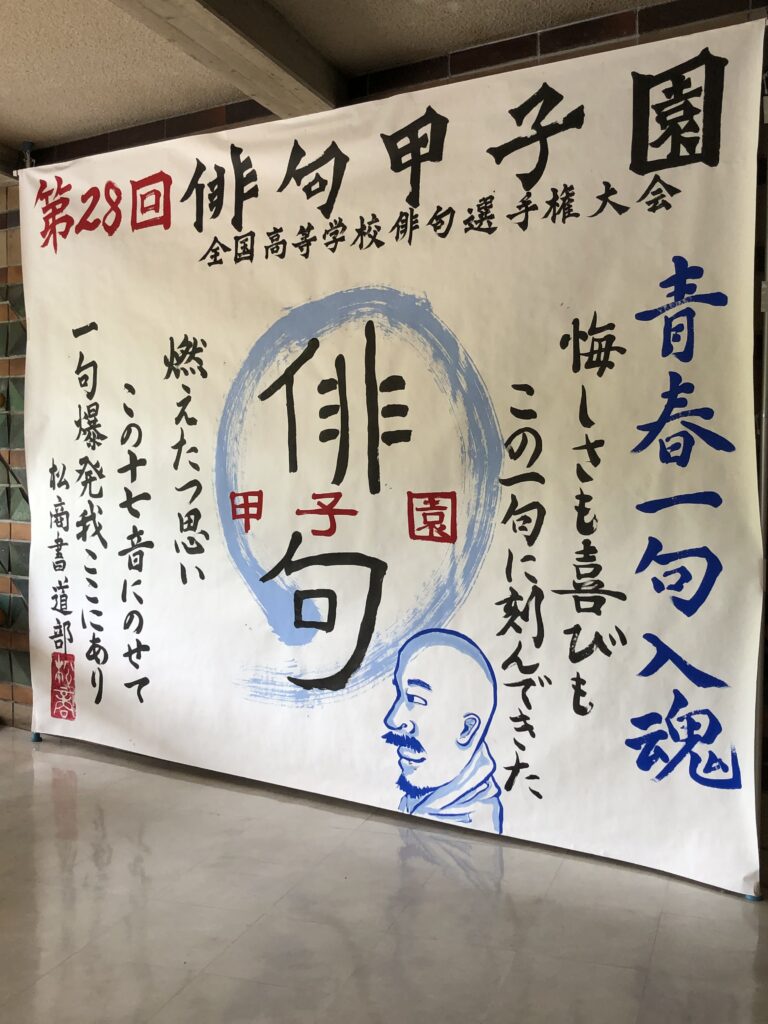 第28回俳句甲子園
全国高等学校俳句選手権大会
青春一句入魂
悔しさも喜びも
この一句に刻んできた
俳句
甲子園
燃えたつ思い
この十七音にのせて
一句爆発我ここにあり
松商書道部
松商